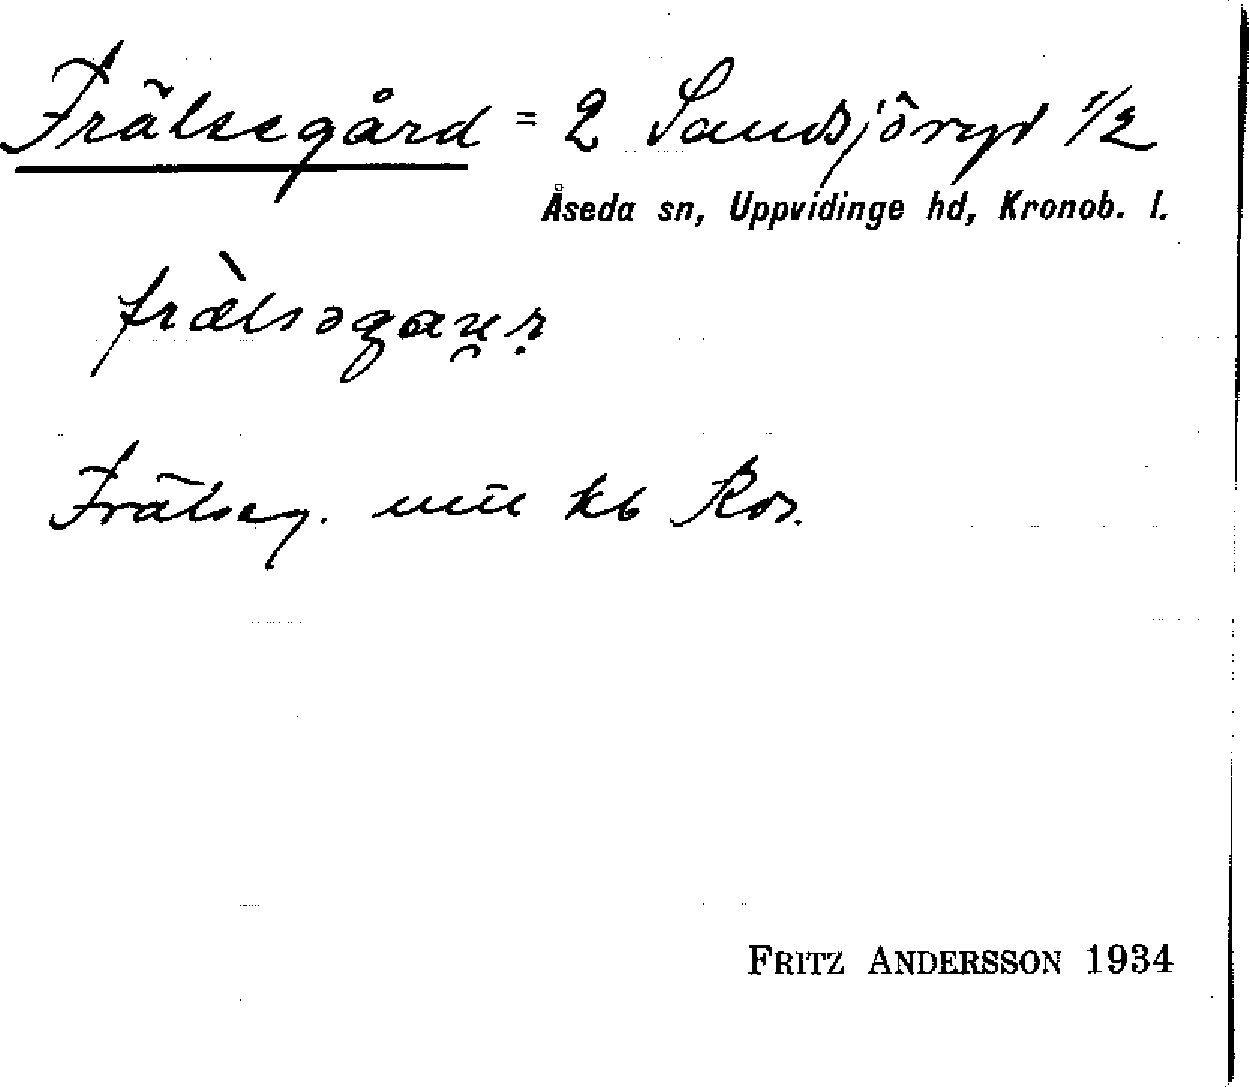 Frälsegård = 2 Sandsjöryd 1/2
Åseda sn, Uppvidinge hd, Kronob. l.
Frälseg. kb
FRITZ ANDERSSON 1934